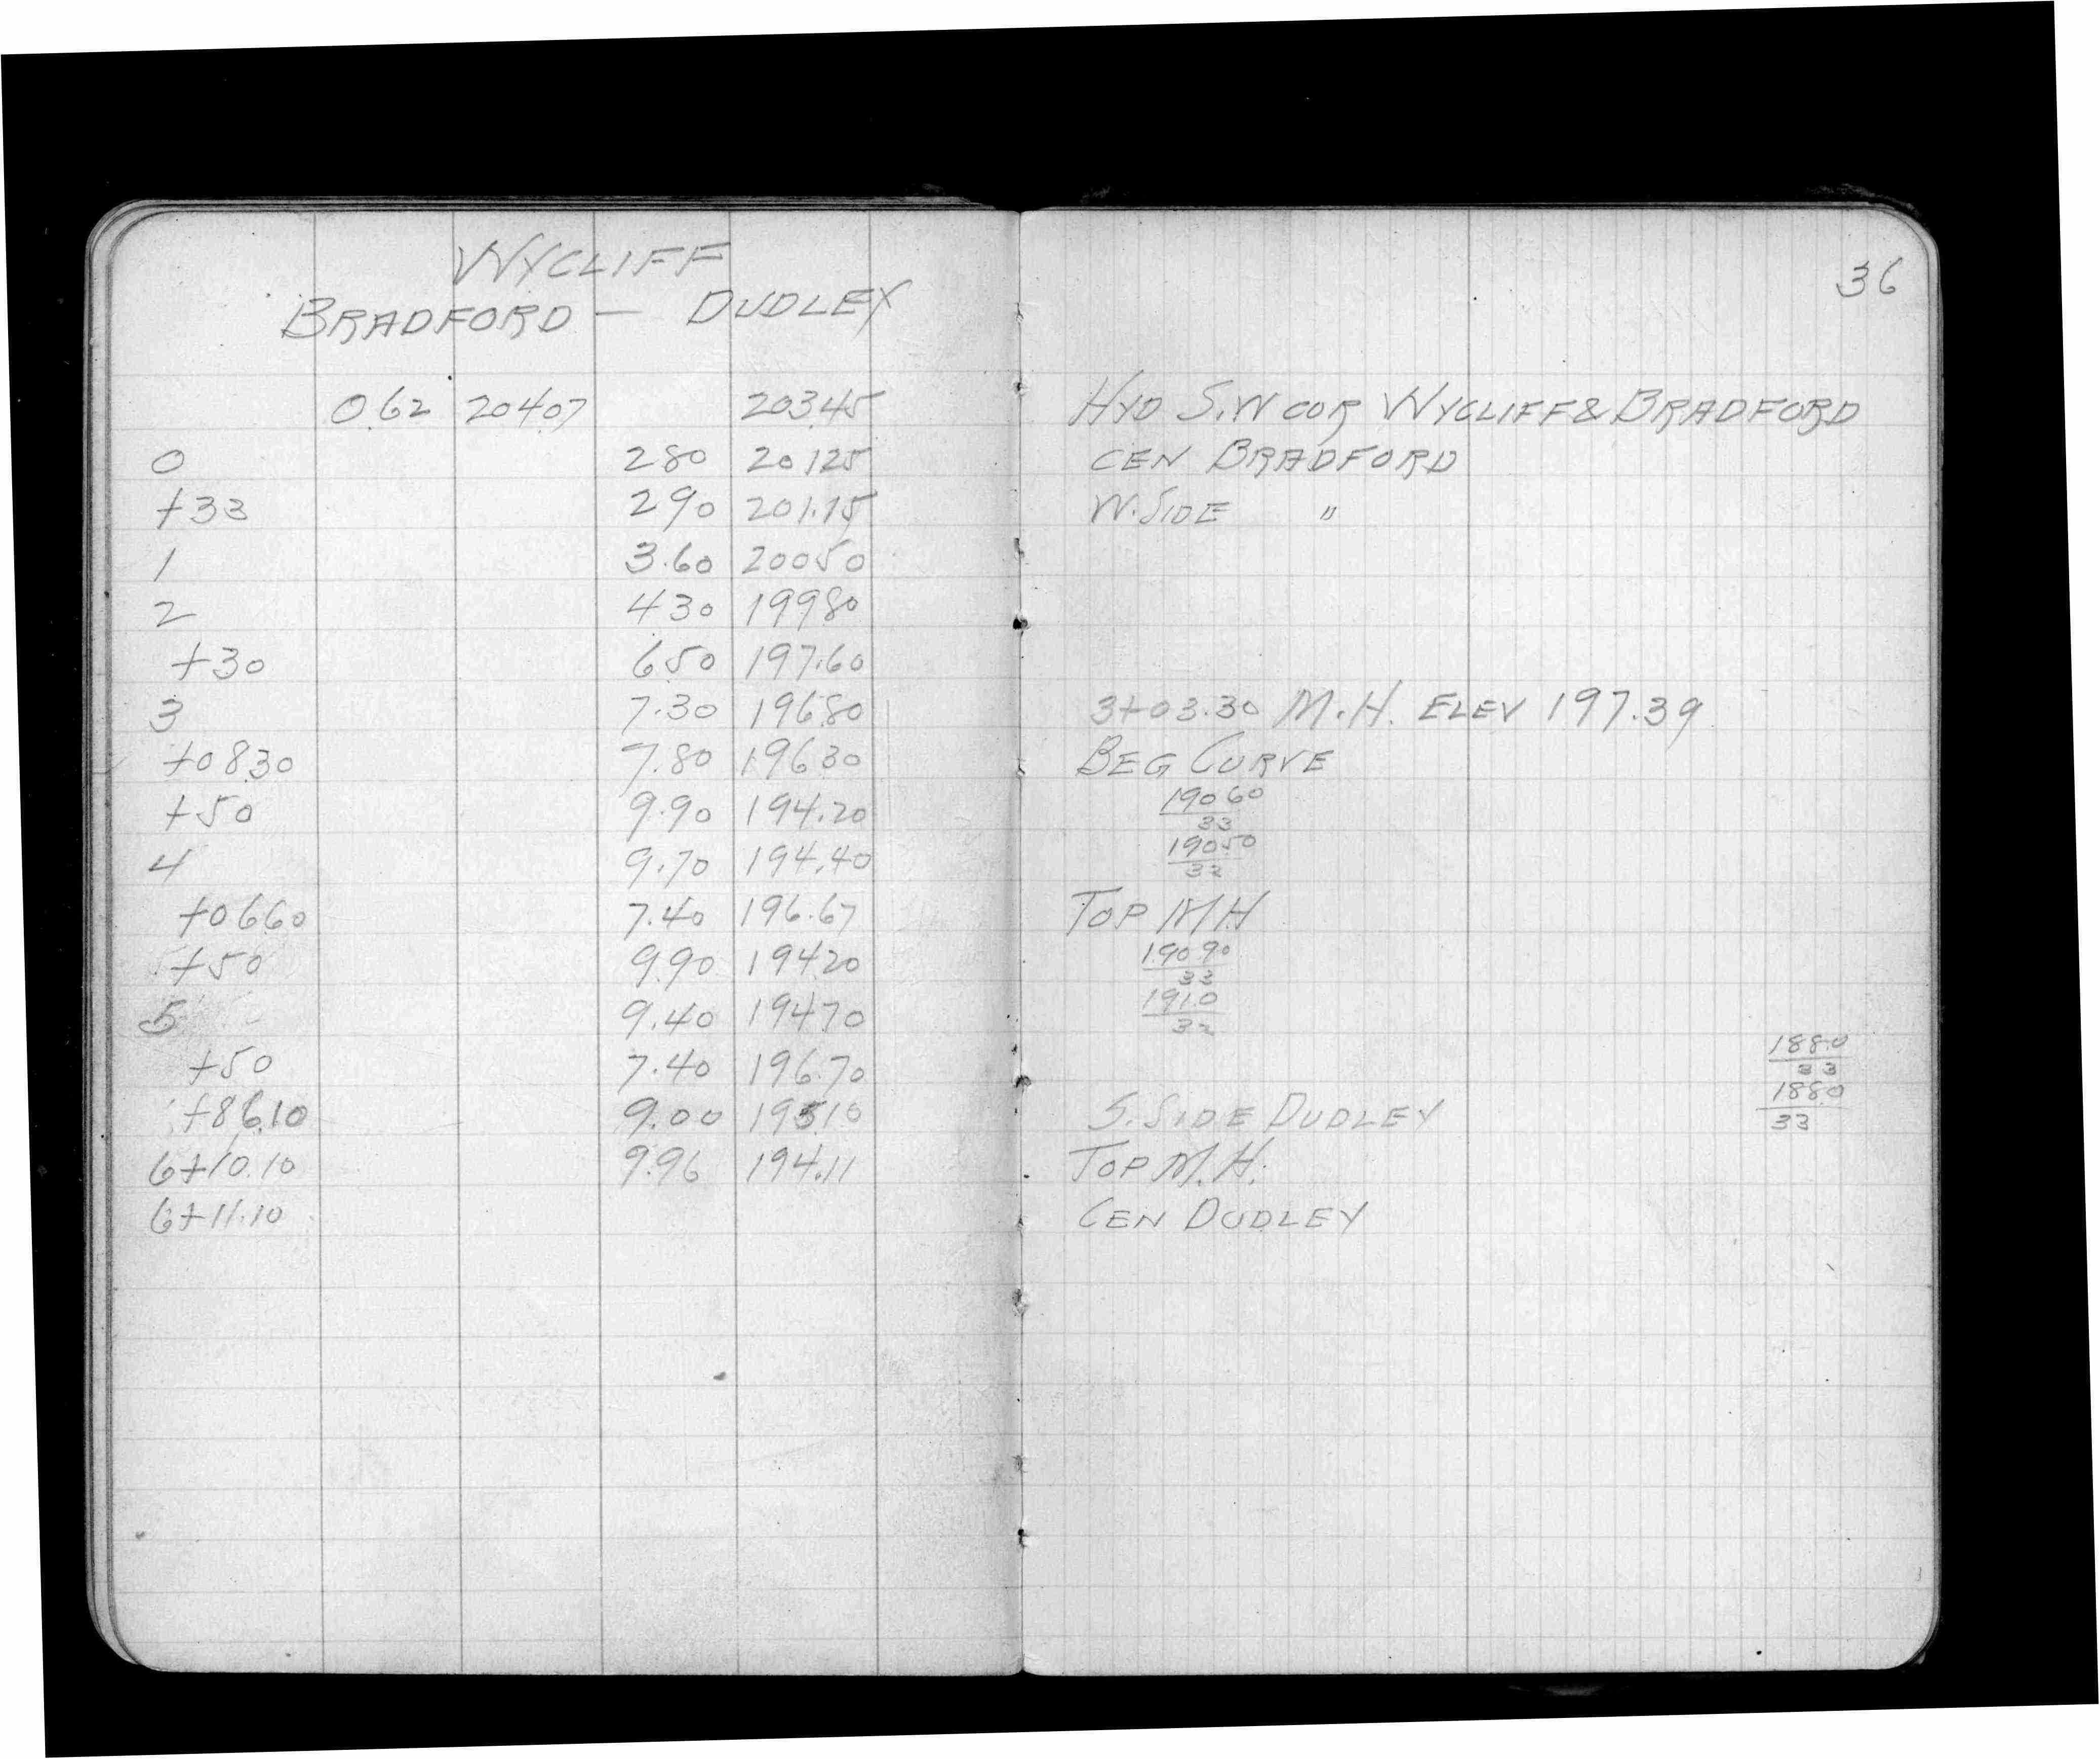 WYCLIFF
BRADFORD — DUDLEY
0.62 204.07 203.45
0 280 20125
+33 290 201.15
1 3.60 20050
2 430 19980
+30 650 197.60
3 7.30 19680
+0830 7.80 19630
+50 9.90 194.20
4 9.70 194.40
+0660 7.40 196.67
+50 9.90 19420
5 9.40 19470
+50 7.40 196.70
+86.10 9.00 19510
6+10.10 9.96 194.11
6+11.10
36
HYD S.W COR WYCLIFF & BRADFORD
CEN BRADFORD
W. SIDE "
3+03.30 M.H. ELEV 197.39
BEG CURVE
19060
33
19050
32
TOP MH
190.90
33
191.0
32
188.0
33
1880
33
S. SIDE DUDLEY
TOP M.H.
CEN DUDLEY